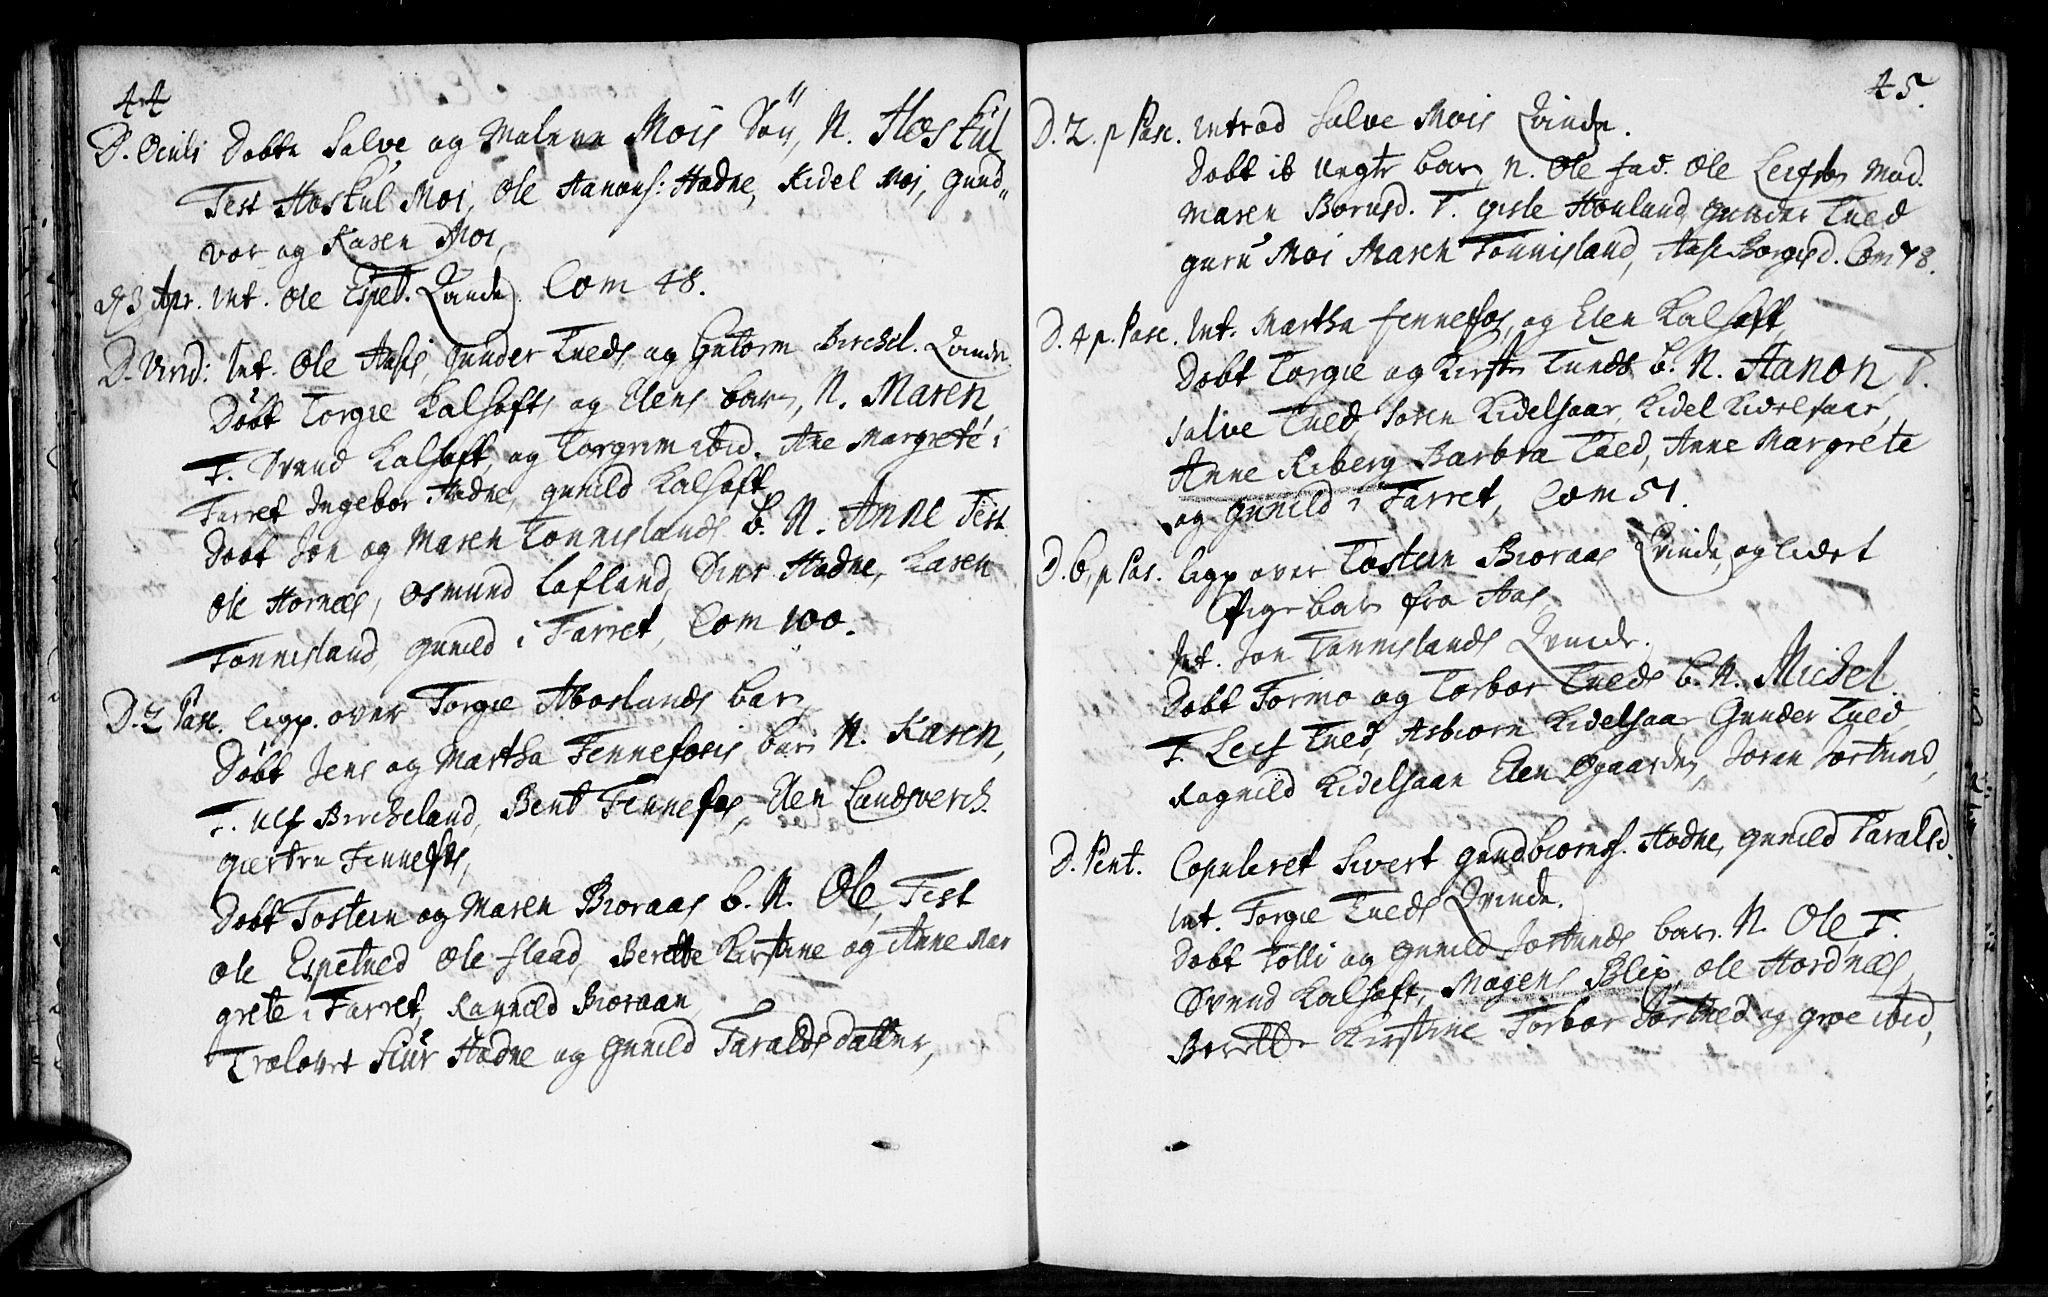 44
D. Oculi Døbte Salve og Malene Mois Søn, N. Høskul
Test Høskul Moi, Ole Aanons: Hødne, Kidel Moi, Gund„
vor og Karen Moi,
Int. Ole Espet. Qvinde. Com 48.
Int. Ole Aasis, Gunder Tueds og Gutorm Birchel. Qvinde.
Døbt Torgie Kalhofts og Elens barn, N. Maren,
T. Svend Kalhoft, og Torgrim ibid. Ane Margrete i
Farret Ingebor Hødne, Gunild Kalhoft
Døbt Jon og Maren Tonnislands b. N. Anne Test.
Ole Hornes, Osmund Lofland, Hødne, Karen
Tonnisland, Gunild i Farret, Com 100.
D. 2 Pasc. over Torgie Aboslands barn
Døbt Jens og Martha Fennefosis barn N. Karen,
T. Ulf Bircheland, Bent Fennefos, Elen Landsverch.
Giertru Fennefos,
Døbt Tostein og Maren Bioraas b. N. Ole, Test
Ole Espetued Ole flaad, Berette Kirstine og Anne Mar
grete i Farret, Ragnild Bioraan
Trolovet Siur Hødne og Gunild Taraldsdatter,
45.
D. 2. p Pasc. Introd Salve Mois Qvinde.
Døbt it Uegte barn N. Ole fad. Ole Leifs Mod.
Maren Bornsd. T. Gisle Honland, Gunder Tued
Guru Moi Maren Tonnisland, Com 78.
D. 4 p. Pasc. Int. Martha Fennefos, og Elen Kalhoft
Døbt Torgie og Kirsti Tueds b. N. Aanon, T.
Salve Tued Soren Kidelsaar, Kidel Kidelsaar,
Anne Riberg Barbra Tued, Anne Margrete
og Gunild i Farret, Com 51.
D. 6, p Pas. over Tostein Bioraas Qvinde, og lidet
Pige barn fra Aas,
Int. Jon Tonnislands Qvinde.
Døbt Tormo og Torbor Tueds b. N. Michel.
T. Leif Tued, Asbiorn Kidelsaar Gunder Tued,
Ragnild Kidelsaar Elen Øgaarden, Joran Jortued,
D. Pent. Copuleret Sivert Gundbiorns. Hødne, Gunild Taralsd.
Int. Torgie Tueds Qvinde.
Døbt Tolli og Gunild Jortueds barn. N. Ole, T.
Svend Kalhoft, Mogens Blix, Ole Hordnes,
Berette Kirstine Torbor Jortued og Groe ibid,